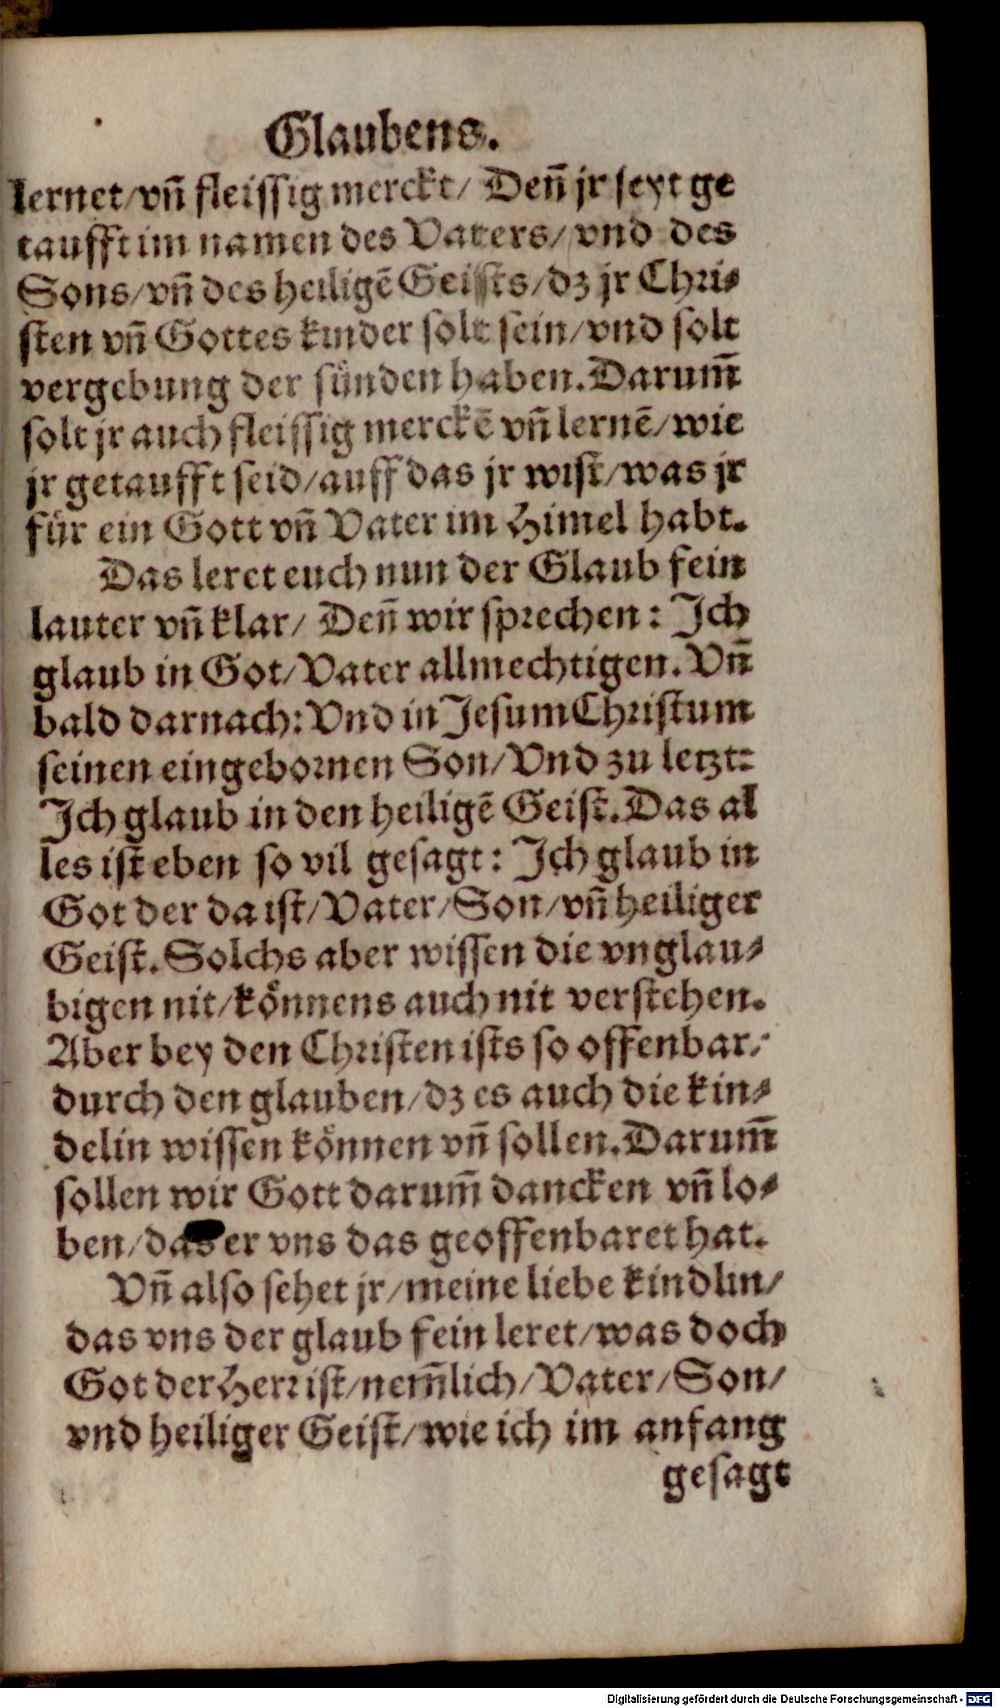 Glaubens.
lernet/vñ fleissig merckt/ Deñ jr seyt ge
taufft im namen des Vaters/vnd des
Sons/vñ des heiligẽ Geists/dz jr Chri⸗
sten vñ Gottes kinder solt sein/vnd solt
vergebung der sünden haben. Darum̃
solt jr auch fleissig merckẽ vñ lernẽ/wie
jr getaufft seid/auff das jr wist/was jr
für ein Gott vñ Vater im Himel habt.
Das leret euch nun der Glaub fein
lauter vñ klar/ Deñ wir sprechen: Ich
glaub in Got/Vater allmechtigen. Vñ
bald darnach: Vnd in Jesum Christum
seinen eingebornen Son/Vnd zu letzt:
Ich glaub in den heiligẽ Geist. Das al
les ist eben so vil gesagt: Ich glaub in
Got der da ist/Vater/Son/vñ heiliger
Geist. Solchs aber wissen die vnglau⸗
bigen nit/könnens auch nit verstehen.
Aber bey den Christen ists so offenbar/
durch den glauben/dz es auch die kin⸗
delin wissen können vñ sollen. Darum̃
sollen wir Gott darum̃ dancken vñ lo⸗
ben/das er vns das geoffenbaret hat.
Vñ also sehet jr/meine liebe kindlin/
das vns der glaub fein leret/was doch
Got der Herr ist/nem̃lich/Vater/Son/
vnd heiliger Geist/wie ich im anfang
gesagt
Digitalisierung gefördert durch die Deutsche Forschungsgemeinschaft - DFG